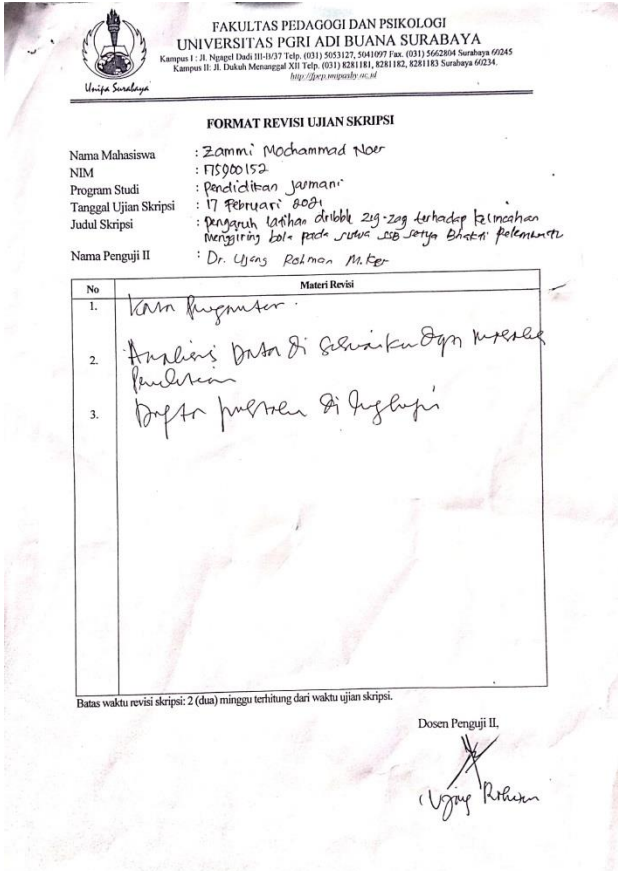 FAKULTAS PEDAGOGI DAN PSIKOLOGI
UNIVERSITAS PGRI ADI BUANA SURABAYA
Kampus I : Jl. Ngagel Dadi III-B/37 Telp. (031) 5053127, 5041097 Fax. (031) 5662804 Surabaya 60245
Kampus II: Jl. Dukuh Menanggal XII Telp. (031) 8281181, 8281182, 8281183 Surabaya 60234.
http://fpep.unipasby.ac.id
Unipa Surabaya
FORMAT REVISI UJIAN SKRIPSI
Nama Mahasiswa : Zammi Mochammad Noer
NIM : 175900152
Program Studi : Pendidikan Jasmani
Tanggal Ujian Skripsi : 17 Februari 2021
Judul Skripsi : Pengaruh latihan dribble zig-zag terhadap kelincahan
Menggiring bola pada siswa SSB Setya Bhakti
Nama Penguji II : Dr. Ujang Rohman M.Kes
No Materi Revisi
1. Kata Pengantar.
2. Analisis Data di sesuaikan dgn
Penelitian
3. Daftar pustaka di lengkapi
Batas waktu revisi skripsi: 2 (dua) minggu terhitung dari waktu ujian skripsi.
Dosen Penguji II,
Ujang Rohman